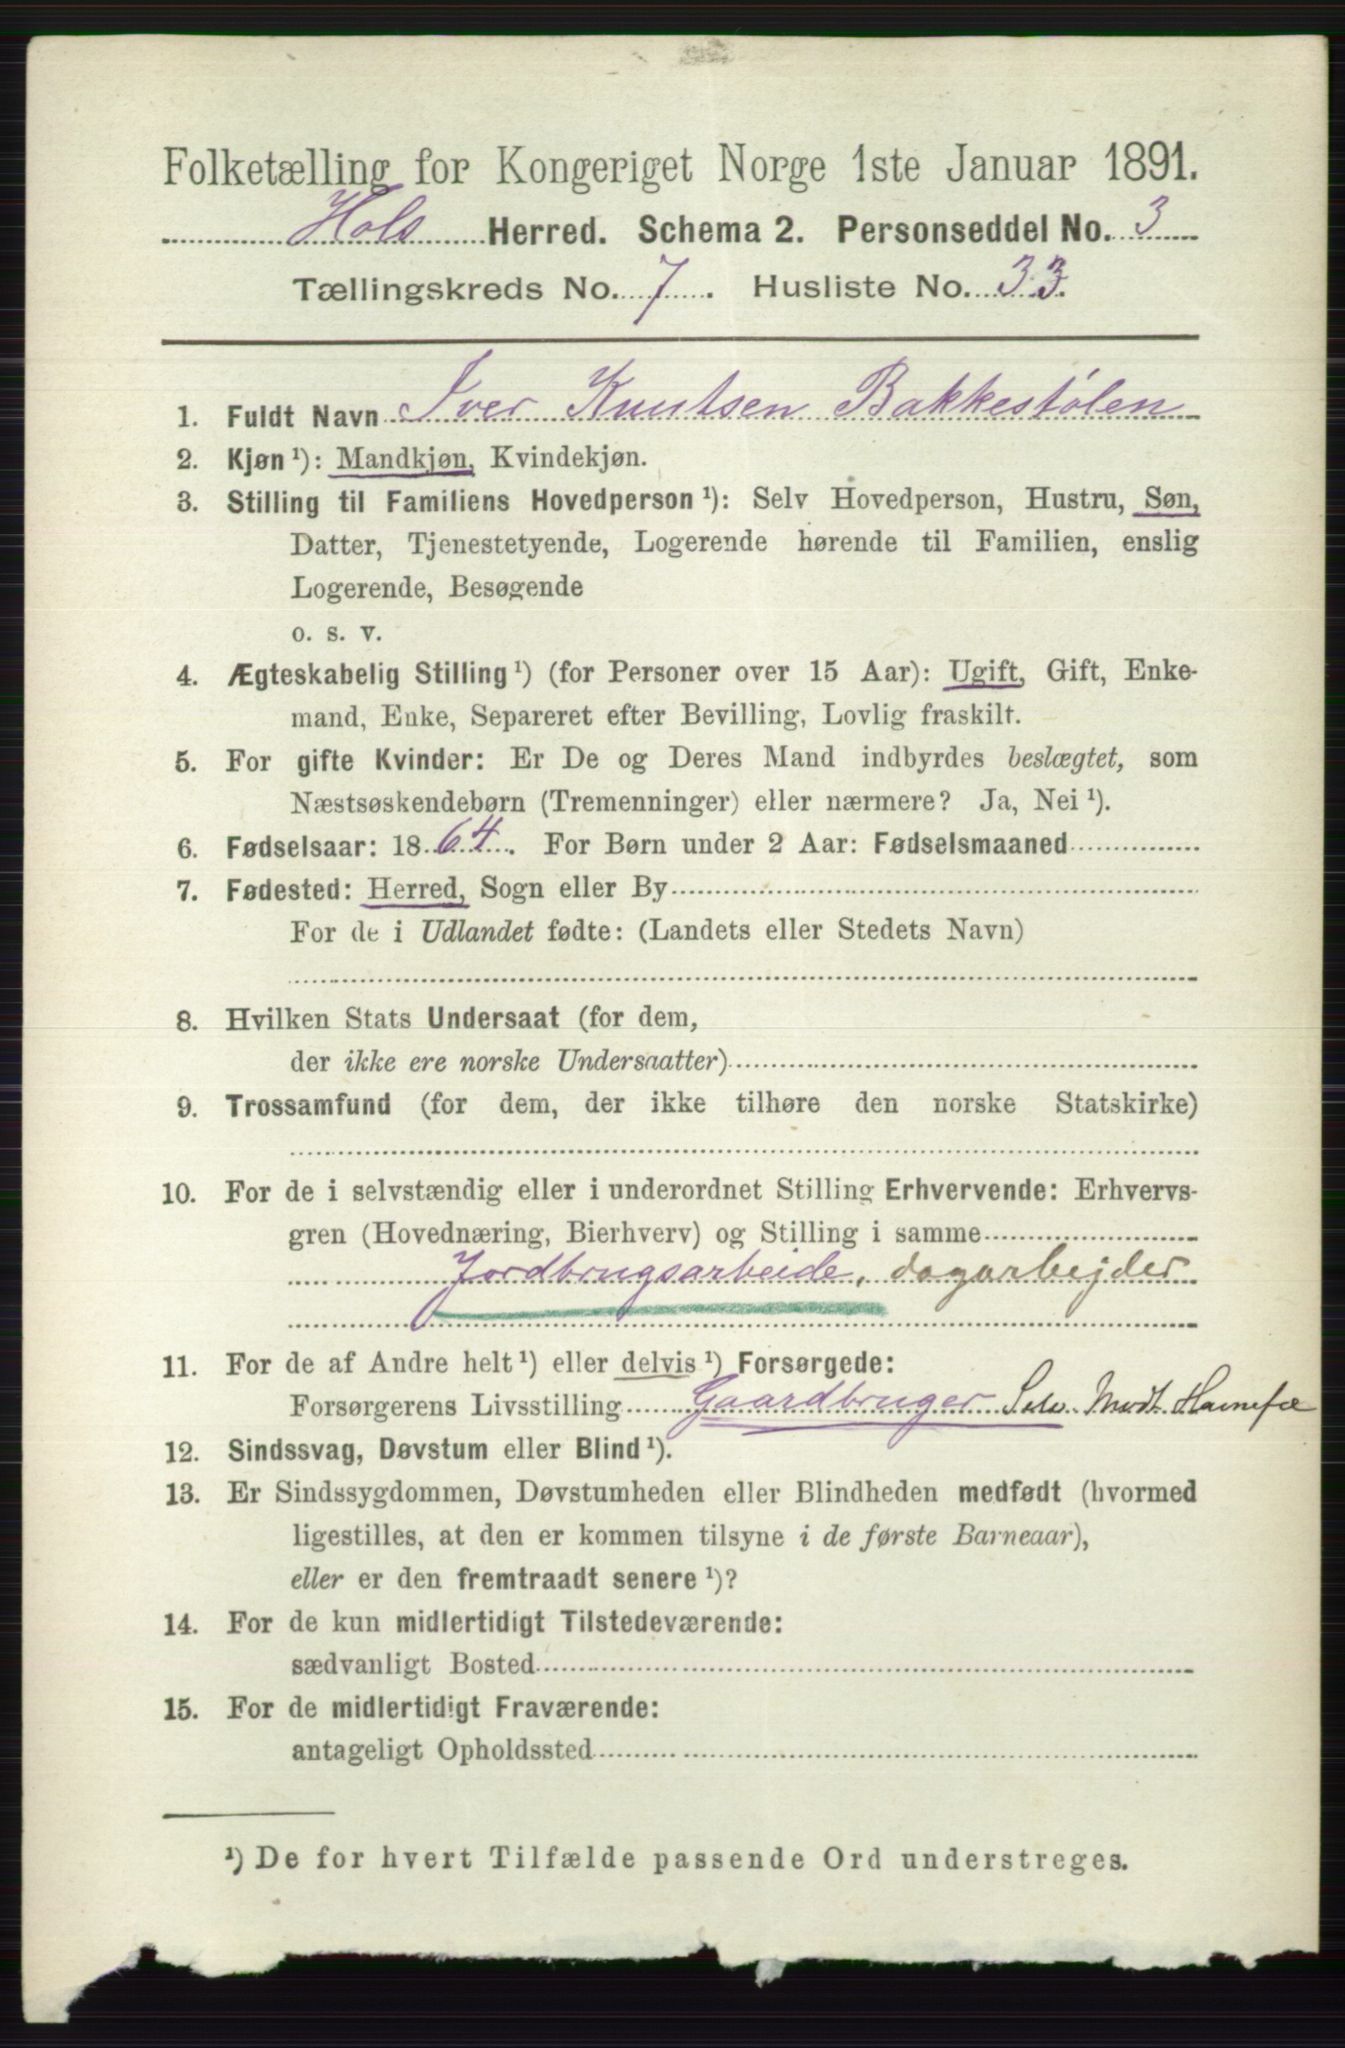 Folketælling for Kongeriget Norge 1ste Januar 1891.
Hols Herred. Schema 2. Personseddel No. 3
Tællingskreds No. 7. Husliste No. 33.
1. Fuldt Navn Iver Knutsen Bakkestølen
2. Kjøn ¹): Mandkjøn, Kvindekjøn.
3. Stilling til Familiens Hovedperson ¹): Selv Hovedperson, Hustru, Søn,
Datter, Tjenestetyende, Logerende hørende til Familien, enslig
Logerende, Besøgende
o. s. v.
4. Ægteskabelig Stilling ¹) (for Personer over 15 Aar): Ugift, Gift, Enke-
mand, Enke, Separeret efter Bevilling, Lovlig fraskilt.
5. For gifte Kvinder: Er De og Deres Mand indbyrdes beslægtet, som
Næstsøskendebørn (Tremenninger) eller nærmere? Ja, Nei ¹).
6. Fødselsaar: 1864. For Børn under 2 Aar: Fødselsmaaned
7. Fødested: Herred, Sogn eller By
For de i Udlandet fødte: (Landets eller Stedets Navn)
8. Hvilken Stats Undersaat (for dem,
der ikke ere norske Undersaatter)
9. Trossamfund (for dem, der ikke tilhøre den norske Statskirke)
10. For de i selvstændig eller i underordnet Stilling Erhvervende: Erhvervs-
gren (Hovednæring, Bierhverv) og Stilling i samme
Jordbrugsarbeide, dagarbejder
11. For de af Andre helt ¹) eller delvis ¹) Forsørgede:
Forsørgerens Livsstilling Gaardbruger Selv
12. Sindssvag, Døvstum eller Blind ¹).
13. Er Sindssygdommen, Døvstumheden eller Blindheden medfødt (hvormed
ligestilles, at den er kommen tilsyne i de første Barneaar),
eller er den fremtraadt senere ¹)?
14. For de kun midlertidigt Tilstedeværende:
sædvanligt Bosted
15. For de midlertidigt Fraværende:
antageligt Opholdssted
¹) De for hvert Tilfælde passende Ord understreges.